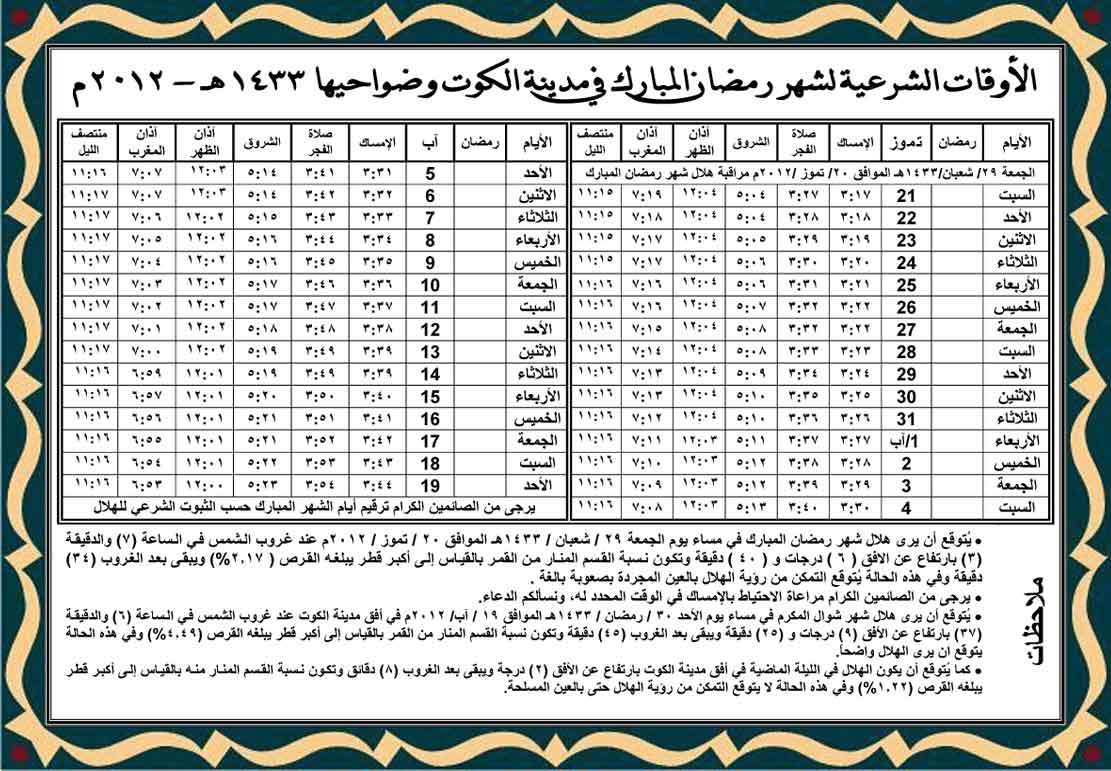 الأوقات الشرعية لشهر رمضان المبارك في مدينة الكوت وضواحيها ١٤٣٣هـ - ٢٠١٢م
الأيام رمضان تموز الإمساك صلاة الفجر الشروق آذان الظهر آذان المغرب منتصف الليل
الجمعة ٢٩/ شعبان/١٤٣٣هـ الموافق ٢٠/ تموز /٢٠١٢م مراقبة هلال شهر رمضان المبارك
السبت 21 ٣:١٧ ٣:٢٧ ٥:٠٤ ١٢:٠٤ ٧:١٩ ١١:١٥
الأحد 22 ٣:١٨ ٣:٢٨ ٥:٠٤ ١٢:٠٤ ٧:١٨ ١١:١٥
الاثنين 23 ٣:١٩ ٣:٢٩ ٥:٠٥ ١٢:٠٤ ٧:١٧ ١١:١٥
الثلاثاء 24 ٣:٢٠ ٣:٣٠ ٥:٠٦ ١٢:٠٤ ٧:١٧ ١١:١٥
الأربعاء 25 ٣:٢١ ٣:٣١ ٥:٠٦ ١٢:٠٤ ٧:١٦ ١١:١٦
الخميس 26 ٣:٢٢ ٣:٣٢ ٥:٠٧ ١٢:٠٤ ٧:١٦ ١١:١٦
الجمعة 27 ٣:٢٢ ٣:٣٢ ٥:٠٨ ١٢:٠٤ ٧:١٥ ١١:١٦
السبت 28 ٣:٢٣ ٣:٣٣ ٥:٠٨ ١٢:٠٤ ٧:١٤ ١١:١٦
الأحد 29 ٣:٢٤ ٣:٣٤ ٥:٠٩ ١٢:٠٤ ٧:١٣ ١١:١٦
الاثنين 30 ٣:٢٥ ٣:٣٥ ٥:١٠ ١٢:٠٤ ٧:١٣ ١١:١٦
الثلاثاء 31 ٣:٢٦ ٣:٣٦ ٥:١٠ ١٢:٠٤ ٧:١٢ ١١:١٦
الأربعاء 1/آب ٣:٢٧ ٣:٣٧ ٥:١١ ١٢:٠٣ ٧:١١ ١١:١٦
الخميس 2 ٣:٢٨ ٣:٣٨ ٥:١٢ ١٢:٠٣ ٧:١٠ ١١:١٦
الجمعة 3 ٣:٢٩ ٣:٣٩ ٥:١٢ ١٢:٠٣ ٧:٠٩ ١١:١٦
السبت 4 ٣:٣٠ ٣:٤٠ ٥:١٣ ١٢:٠٣ ٧:٠٨ ١١:١٦
الأيام رمضان آب الإمساك صلاة الفجر الشروق آذان الظهر آذان المغرب منتصف الليل
الأحد 5 ٣:٣١ ٣:٤١ ٥:١٤ ١٢:٠٣ ٧:٠٧ ١١:١٦
الاثنين 6 ٣:٣٢ ٣:٤٢ ٥:١٤ ١٢:٠٣ ٧:٠٧ ١١:١٧
الثلاثاء 7 ٣:٣٣ ٣:٤٣ ٥:١٥ ١٢:٠٢ ٧:٠٦ ١١:١٧
الأربعاء 8 ٣:٣٤ ٣:٤٤ ٥:١٦ ١٢:٠٢ ٧:٠٥ ١١:١٧
الخميس 9 ٣:٣٥ ٣:٤٥ ٥:١٦ ١٢:٠٢ ٧:٠٤ ١١:١٧
الجمعة 10 ٣:٣٦ ٣:٤٦ ٥:١٧ ١٢:٠٢ ٧:٠٣ ١١:١٧
السبت 11 ٣:٣٧ ٣:٤٧ ٥:١٧ ١٢:٠٢ ٧:٠٢ ١١:١٧
الأحد 12 ٣:٣٨ ٣:٤٨ ٥:١٨ ١٢:٠٢ ٧:٠١ ١١:١٧
الاثنين 13 ٣:٣٩ ٣:٤٩ ٥:١٩ ١٢:٠٢ ٧:٠٠ ١١:١٧
الثلاثاء 14 ٣:٣٩ ٣:٤٩ ٥:١٩ ١٢:٠١ ٦:٥٩ ١١:١٦
الأربعاء 15 ٣:٤٠ ٣:٥٠ ٥:٢٠ ١٢:٠١ ٦:٥٧ ١١:١٦
الخميس 16 ٣:٤١ ٣:٥١ ٥:٢١ ١٢:٠١ ٦:٥٦ ١١:١٦
الجمعة 17 ٣:٤٢ ٣:٥٢ ٥:٢١ ١٢:٠١ ٦:٥٥ ١١:١٦
السبت 18 ٣:٤٣ ٣:٥٣ ٥:٢٢ ١٢:٠١ ٦:٥٤ ١١:١٦
الأحد 19 ٣:٤٤ ٣:٥٤ ٥:٢٣ ١٢:٠٠ ٦:٥٣ ١١:١٦
يرجى من الصائمين الكرام ترقيم أيام الشهر المبارك حسب الثبوت الشرعي للهلال
ملاحظات
• يُتوقع أن يرى هلال شهر رمضان المبارك في مساء يوم الجمعة ٢٩ / شعبان / ١٤٣٣هـ الموافق ٢٠ / تموز / ٢٠١٢م عند غروب الشمس في الساعة (٧) والدقيقة
(٣) بارتفاع عن الافق ( ٦ ) درجات و ( ٤٠ ) دقيقة وتكون نسبة القسم المنار من القمر بالقياس إلى أكبر قطر يبلغه القرص ( ٢,١٧%) ويبقى بعد الغروب (٣٤)
دقيقة وفي هذه الحالة يُتوقع التمكن من رؤية الهلال بالعين المجردة بصعوبة بالغة .
• يرجى من الصائمين الكرام مراعاة الاحتياط بالإمساك في الوقت المحدد له، ونسألكم الدعاء.
• يُتوقع أن يرى هلال شهر شوال المكرم في مساء يوم الأحد ٣٠ / رمضان / ١٤٣٣هـ الموافق ١٩ / آب/ ٢٠١٢م في أفق مدينة الكوت عند غروب الشمس في الساعة (٦) والدقيقة
(٣٧) بارتفاع عن الافق (٩) درجات و (٢٥) دقيقة ويبقى بعد الغروب (٤٥) دقيقة وتكون نسبة القسم المنار من القمر بالقياس إلى أكبر قطر يبلغه القرص (٤,٤٩%) وفي هذه الحالة
يتوقع ان يرى الهلال واضحاً.
• كما يُتوقع أن يكون الهلال في الليلة الماضية في أفق مدينة الكوت بارتفاع عن الأفق (٢) درجة ويبقى بعد الغروب (٨) دقائق وتكون نسبة القسم المنار منه بالقياس إلى أكبر قطر
يبلغه القرص (١,٢٢%) وفي هذه الحالة لا يتوقع التمكن من رؤية الهلال حتى بالعين المسلحة.